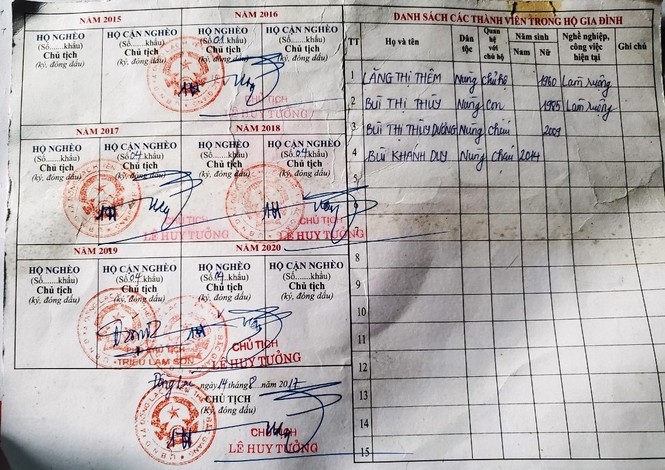 NĂM 2015
NĂM 2016
HỘ NGHÈO
(Số.......khẩu)
Chủ tịch
(ký, đóng dấu)
HỘ CẬN NGHÈO
(Số.......khẩu)
Chủ tịch
(ký, đóng dấu)
HỘ NGHÈO
(Số 01 khẩu)
Chủ tịch
(ký, đóng dấu)
HỘ CẬN NGHÈO
(Số.......khẩu)
Chủ tịch
(ký, đóng dấu)
CHỦ TỊCH
LÊ HUY TƯỞNG
NĂM 2017
NĂM 2018
HỘ NGHÈO
(Số.......khẩu)
Chủ tịch
(ký, đóng dấu)
HỘ CẬN NGHÈO
(Số 04 khẩu)
Chủ tịch
(ký, đóng dấu)
HỘ NGHÈO
(Số.......khẩu)
Chủ tịch
(ký, đóng dấu)
HỘ CẬN NGHÈO
(Số 04 khẩu)
Chủ tịch
(ký, đóng dấu)
CHỦ TỊCH
LÊ HUY TƯỞNG
NĂM 2019
NĂM 2020
HỘ NGHÈO
(Số.......khẩu)
Chủ tịch
(ký, đóng dấu)
HỘ CẬN NGHÈO
(Số 04 khẩu)
Chủ tịch
(ký, đóng dấu)
HỘ NGHÈO
(Số 04 khẩu)
Chủ tịch
(ký, đóng dấu)
HỘ CẬN NGHÈO
(Số.......khẩu)
Chủ tịch
(ký, đóng dấu)
CHỦ TỊCH
TRIỆU LAM SƠN
CHỦ TỊCH
LÊ HUY TƯỞNG
ngày 14 tháng 8 năm 2017
CHỦ TỊCH
(Ký, đóng dấu)
CHỦ TỊCH
LÊ HUY TƯỞNG
DANH SÁCH CÁC THÀNH VIÊN TRONG HỘ GIA ĐÌNH
TT Họ và tên Dân tộc Quan hệ với chủ hộ Năm sinh Nam Nữ Nghề nghiệp, công việc hiện tại Ghi chú
1 LĂNG THỊ THÊM Nùng Chủ hộ 1960 Làm ruộng
2 BÙI THỊ THÚY Nùng Con 1985 Làm ruộng
3 BÙI THỊ THÙY DƯƠNG Nùng Cháu 2009
4 BÙI KHÁNH DUY Nùng Cháu 2014
5
8
9
10
11
12
13
14
15